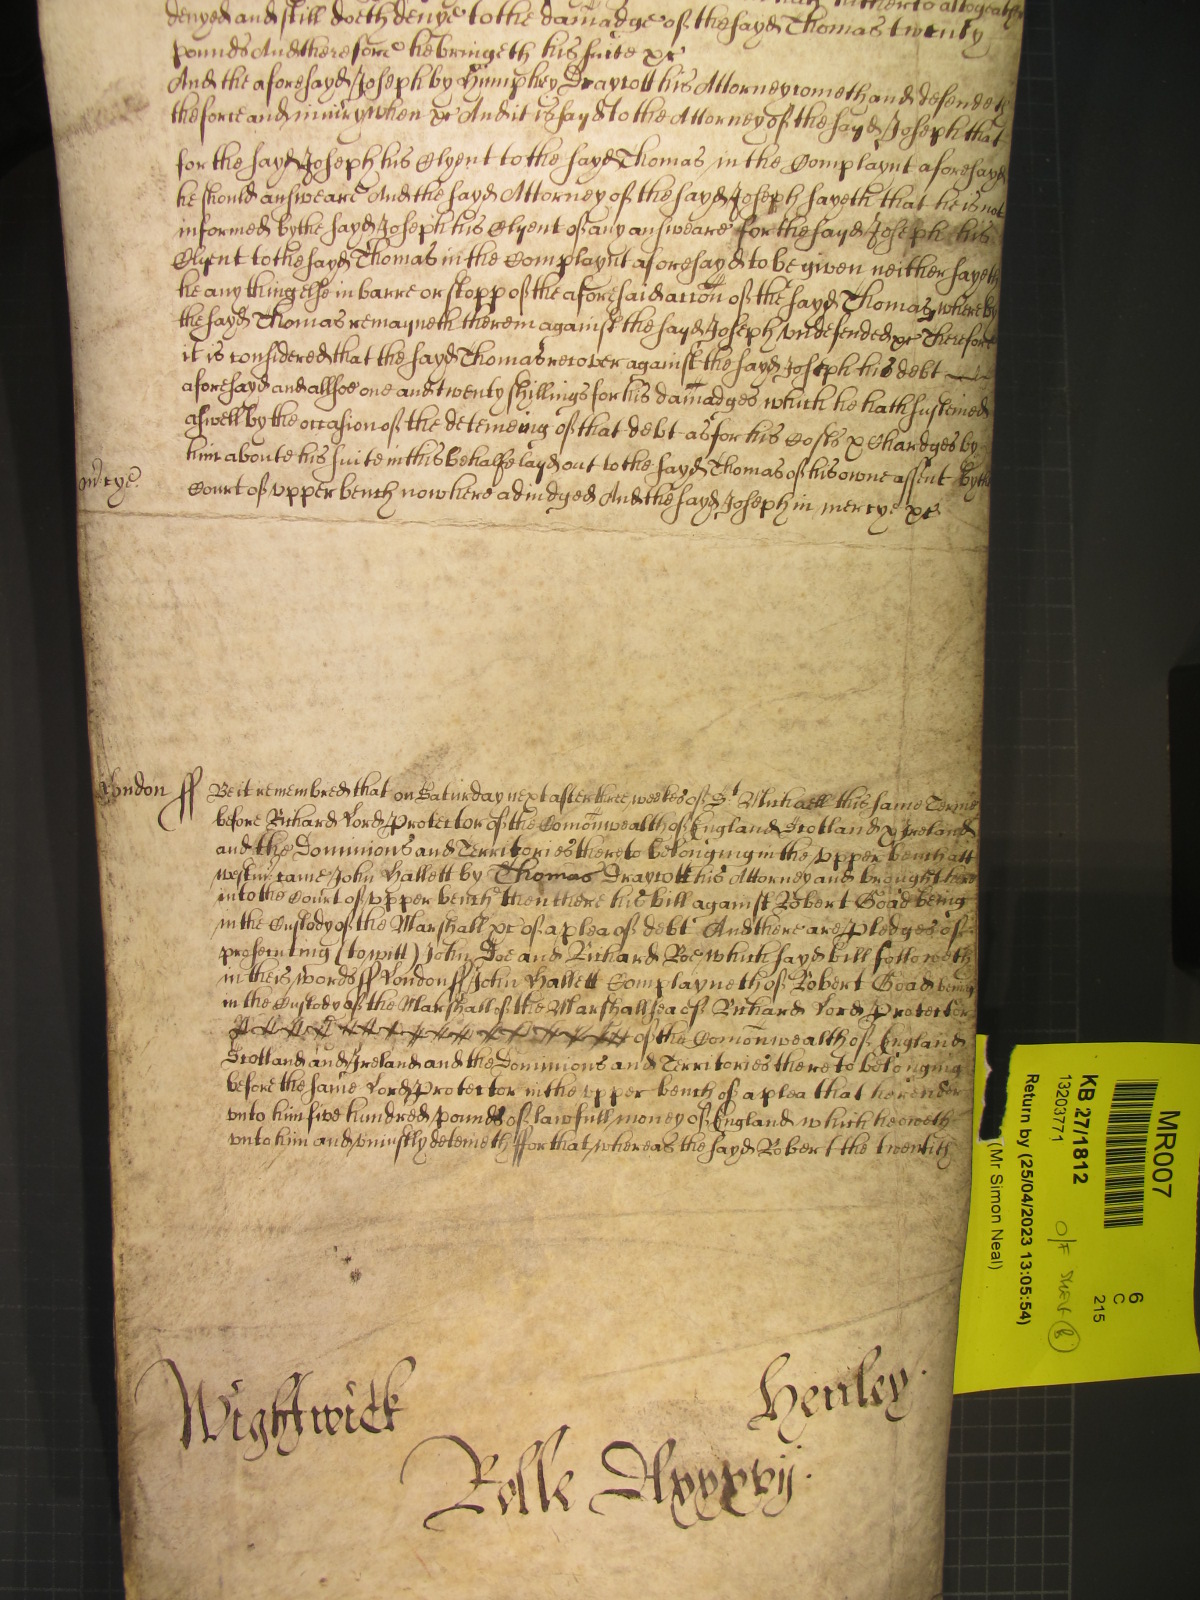 hitherto altogeather
denyed and still doeth denye to the damadge of the sayd Thomas twenty
pounds And therefore he bringeth his suite &c
And the aforesayd Joseph by Humphry Draycott his Attorney cometh and defendeth
the force and iniury when &c And it is sayd to the Attorney of the sayd Joseph that
for the sayd Joseph his Clyent to the sayd Thomas in the Complaynt aforesayd
he should answeare And the sayd Attorney of the sayd Joseph sayeth that he is not
informed by the sayd Joseph his Clyent of any answeare for the sayd Joseph his
Clyent to the sayd Thomas in the Complaynt aforesayd to be given neither sayeth
he any thing else in barre or stopp of the aforesaid accon of the sayd Thomas, whereby
the sayd Thomas remayneth therein against the sayd Joseph vndefended &c Therefore
it is considered that the sayd Thomas recover against the sayd Joseph his debt
aforesayd and allsoe one and twenty shillings for his damadges which he hath susteined
aswell by the occasion of the deteineing of that debt as for his Costs & Chardges by
him aboute his suite in this behalfe layd out to the sayd Thomas of his owne assent by the
mercye.
Court of vpper bench now here adiudged And the sayd Joseph in mercye &c
London ff Be it remembred that on Saturday next after three weekes of St Michaell this same Terme
before Richard Lord Protector of the Comonwealth of England Scotland & Ireland
and the Dominions and Territories thereto belonging in the vpper bench att
Westmr came John Hallett by Thomas Draycott his Attorney and brought here
into the Court of vpper bench then there his bill against Robert Goad being
in the Custody of the Marshall &c of a plea of debt And there are pledges of
prosecuting (to witt) John Doe and Richard Roe, which sayd bill followeth
in theis words ff London ff John Hallett Complayneth of Robert Goad being
in the Custody of the Marshall of the Marshallsea of Richard Lord Protector
of the Comonwealth of England
Scotland and Ireland and the Dominions and Territories thereto belonging
before the same Lord Protector in the vpper bench of a plea that he render
vnto him five hundred pounds of lawfull money of England which he oweth
vnto him and vniustly deteineth ffor that, whereas the sayd Robert the twentith
Wightwick
Henley.
Rolle Mlxxxvij.
MR007
6
C
215
KB 27/1812
13203771
O/F Shelf B
Return by (25/04/2023 13:05:54)
(Mr Simon Neal)